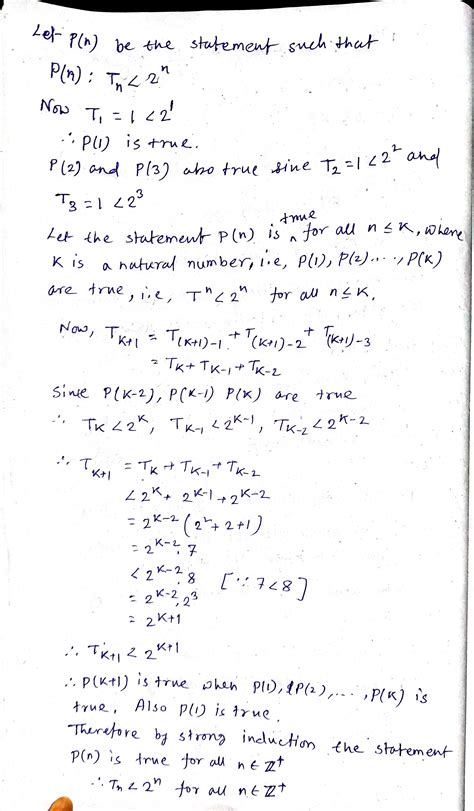 Let P(n) be the statement such that :
P(n) : Tn < 2^n
Now T1 = 1 < 2^1
∴ P(1) is true.
P(2) and P(3) also true sine T2 = 1 < 2^2 and
T3 = 1 < 2^3
Let the statement P(n) is true for all n ≤ K, where
K is a natural number, i.e, P(1), P(2)....., P(K)
are true, i.e, T^n < 2^n for all n ≤ K.
Now, T_{K+1} = T_{(K+1)-1} + T_{(K+1)-2} + T_{(K+1)-3}
= T_K + T_{K-1} + T_{K-2}
Since P(K-2), P(K-1) P(K) are true
∴ T_K < 2^K, T_{K-1} < 2^{K-1}, T_{K-2} < 2^{K-2}
∴ T_{K+1} = T_K + T_{K-1} + T_{K-2}
< 2^K + 2^{K-1} + 2^{K-2}
= 2^{K-2} (2^2 + 2 + 1)
= 2^{K-2}. 7
< 2^{K-2}. 8 [∵ 7 < 8]
= 2^{K-2}. 2^3
= 2^{K+1}
∴ T_{K+1} < 2^{K+1}
∴ P(K+1) is true when P(1), P(2), ..., P(K) is
true. Also P(1) is true.
Therefore by strong induction the statement
P(n) is true for all n ∈ Z^+
∴ Tn < 2^n for all n ∈ Z^+